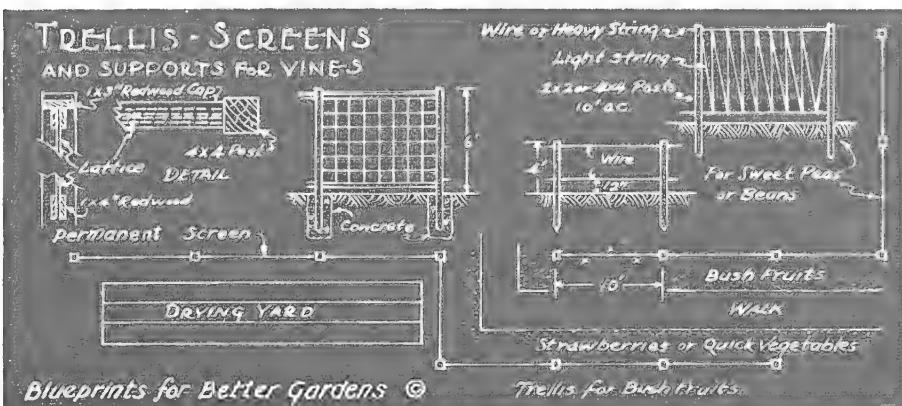 TRELLIS - SCREENS
AND SUPPORTS FOR VINES
1x3" Redwood Cap
Lattice
4x4 Posts
DETAIL
1x4" Redwood
Permanent Screen
Concrete
6'
DRYING YARD
Wire or Heavy String
Light String
2x2 or 4x4 Posts
10' O.C.
4'
Wire
12"
For Sweet Peas
or Beans
10'
Bush Fruits
WALK
Strawberries or Quick Vegetables
Blueprints for Better Gardens ©
Trellis for Bush Fruits